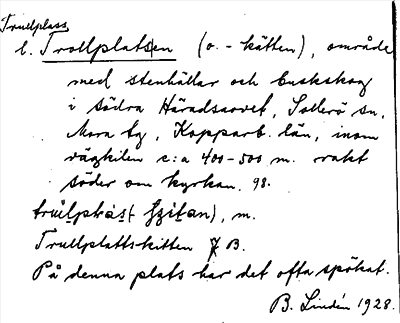 Trullplass
l. Trollplatsen (o. -kätten), område
med stenhällar och buskskog
i södra Häradsarvet, Sollerö sn,
Mora tg, Kopparb. län, inom
vägkilen c:a 400-500 m. rakt
söder om kyrkan. 98.
m.
Trullplattskitten B.
På denna plats har det ofta spökat.
B. Lindén 1928.